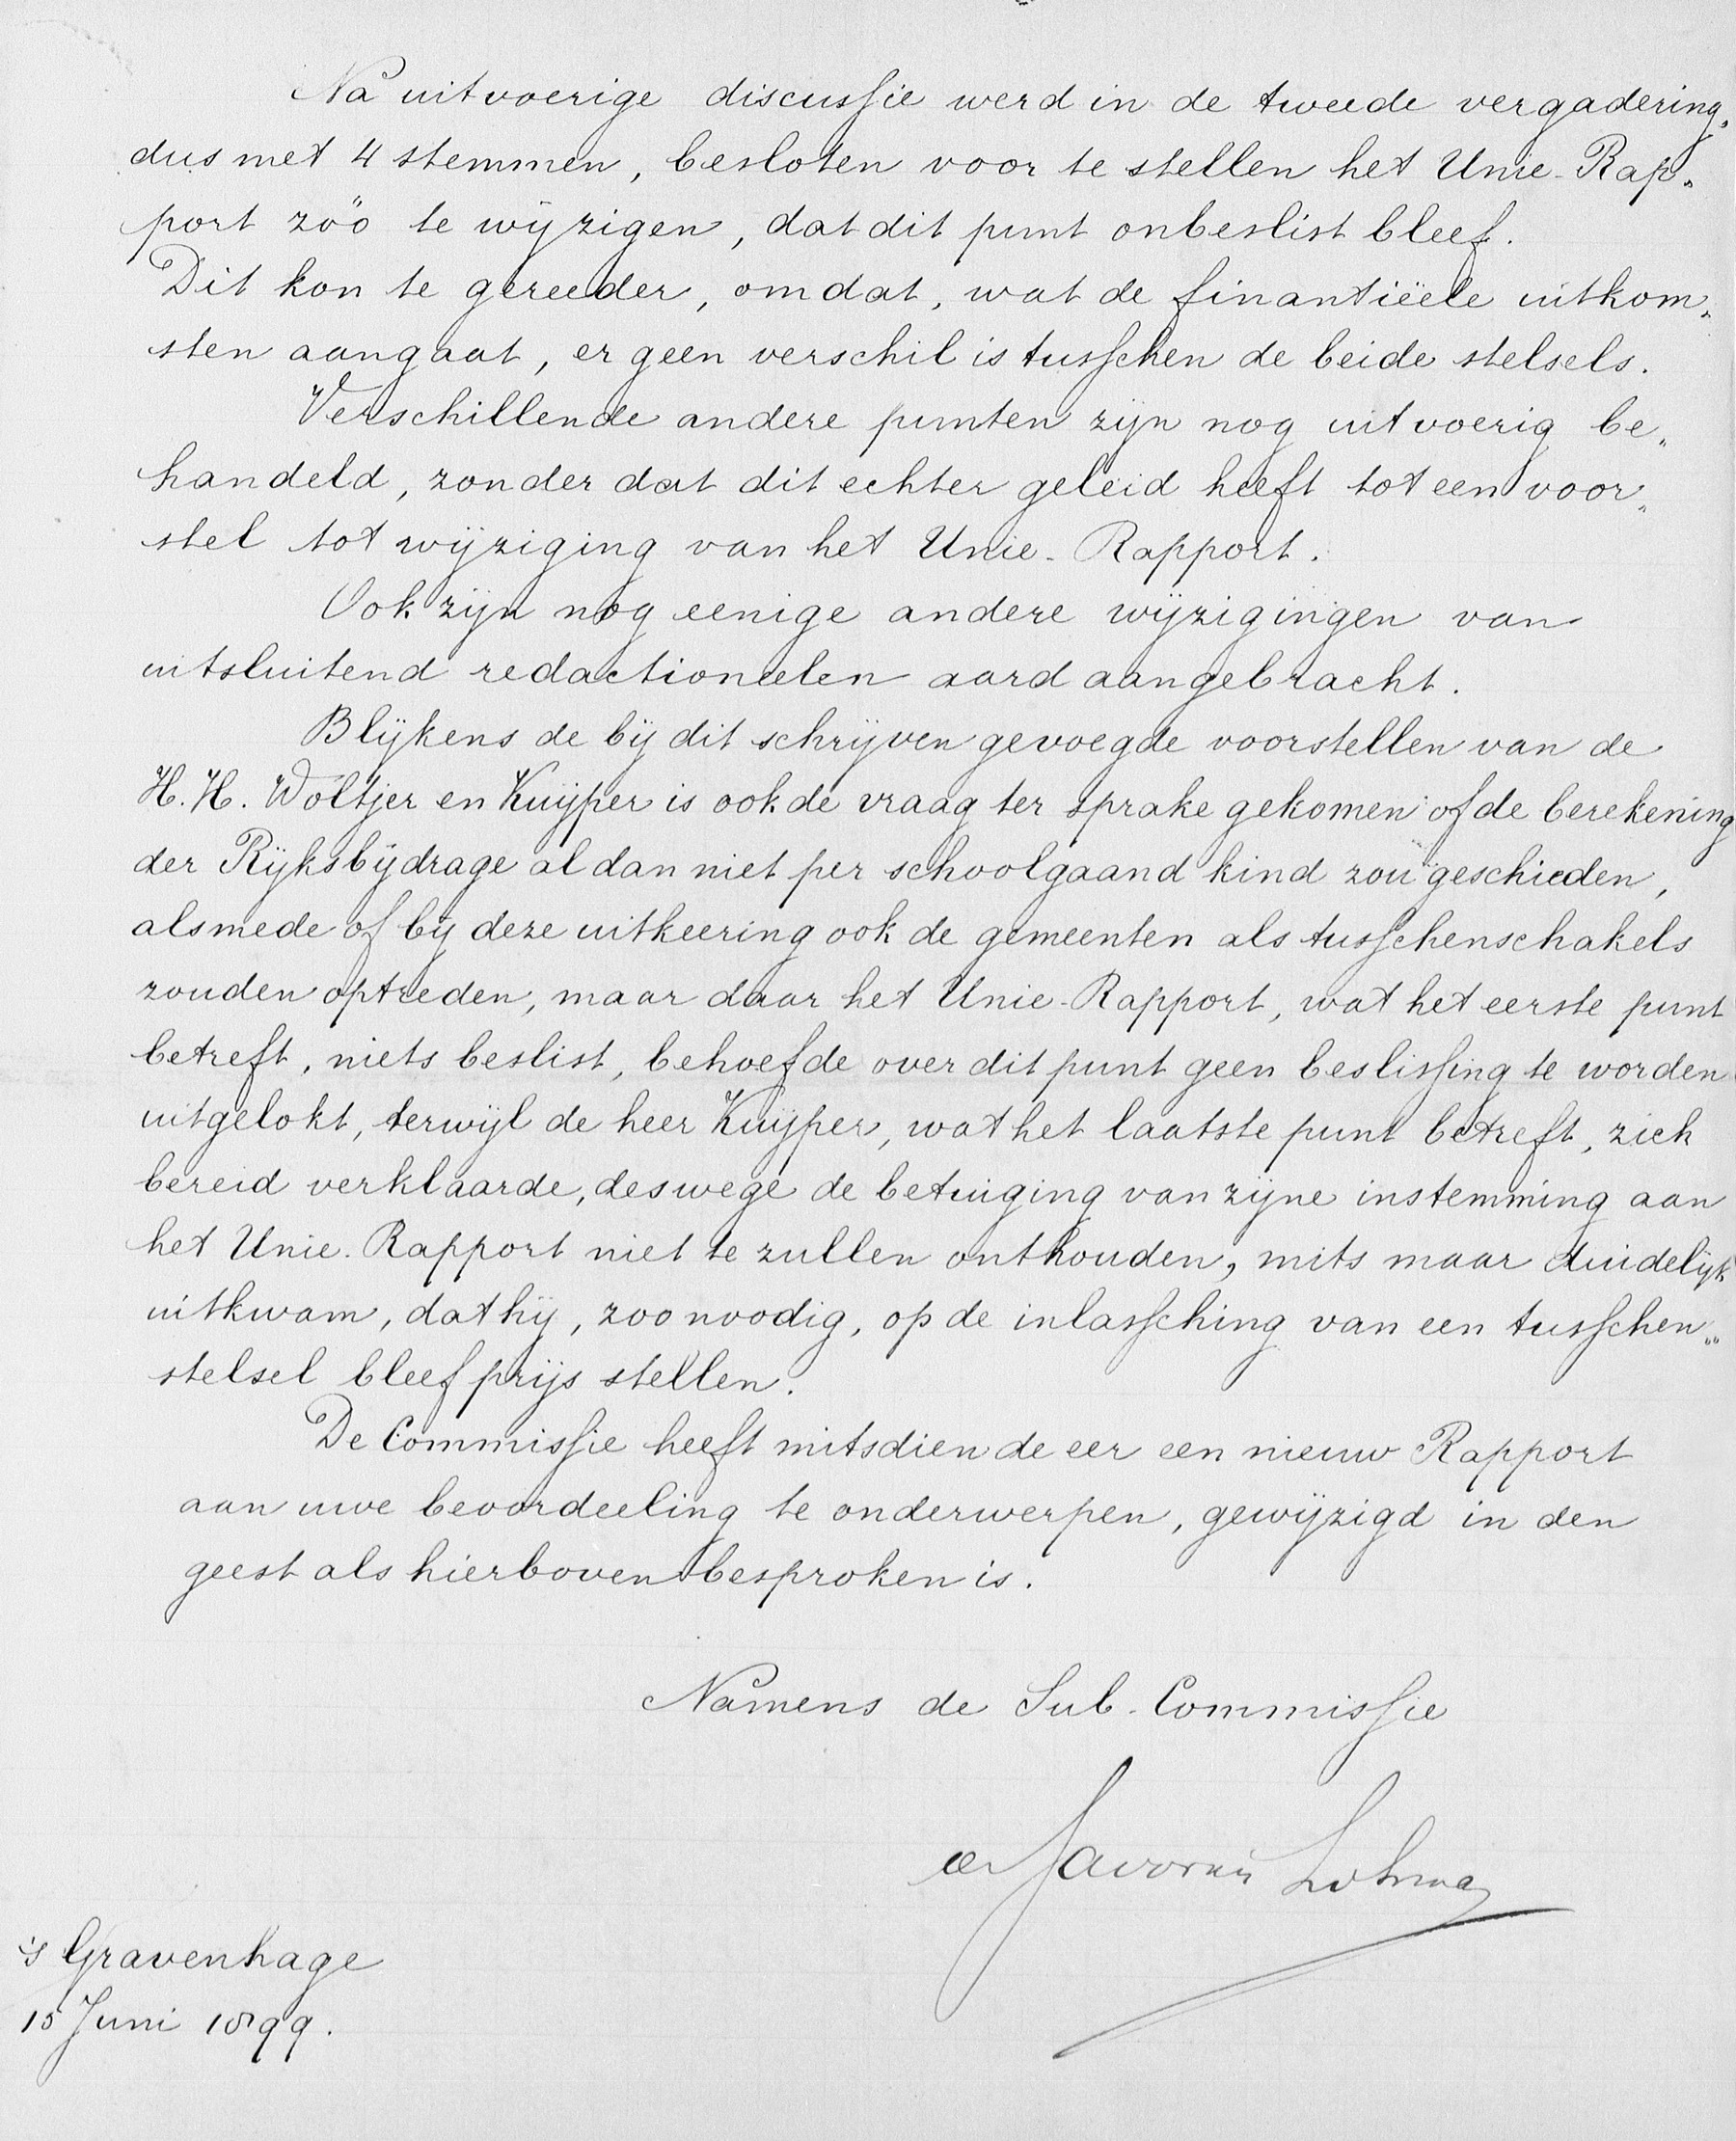 Na uitvoerige discussie werd in de tweede vergadering,
dus met 4 stemmen, besloten voor te stellen het Unie-Rap„
port zóó te wijzigen, dat dit punt onbeslist bleef.
Dit kon te gereeder, omdat, wat de finantiëele uitkom„
sten aangaat, er geen verschil is tusschen de beide stelsels.
Verschillende andere punten zijn nog uitvoerig be„
handeld, zonder dat dit echter geleid heeft tot een voor„
stel tot wijziging van het Unie-Rapport.
Ook zijn nog eenige andere wijzigingen van
uitsluitend redactioneelen aard aangebracht.
Blijkens de bij dit schrijven gevoegde voorstellen van de
H.H. Woltjer en Kuijper is ook de vraag ter sprake gekomen of de berekening
der Rijksbijdrage al dan niet per schoolgaand kind zou geschieden,
alsmede of bij deze uitkeering ook de gemeenten als tusschenschakels
zouden optreden, maar daar het Unie-Rapport, wat het eerste punt
betreft, niets beslist, behoefde over dit punt geen beslissing te worden
uitgelokt, terwijl de heer Kuijper, wat het laatste punt betreft, zich
bereid verklaarde, deswege de betuiging van zijne instemming aan
het Unie-Rapport niet te zullen onthouden, mits maar duidelijk
uitkwam, dat hij, zoo noodig, op de inlassching van een tusschen„
stelsel bleef prijs stellen.
De Commissie heeft mitsdien de eer een nieuw Rapport
aan uwe beoordeeling te onderwerpen, gewijzigd in den
geest als hierboven besproken is.
Namens de Sub-Commissie
de Savornin Lohman
's Gravenhage
15 Juni 1899.